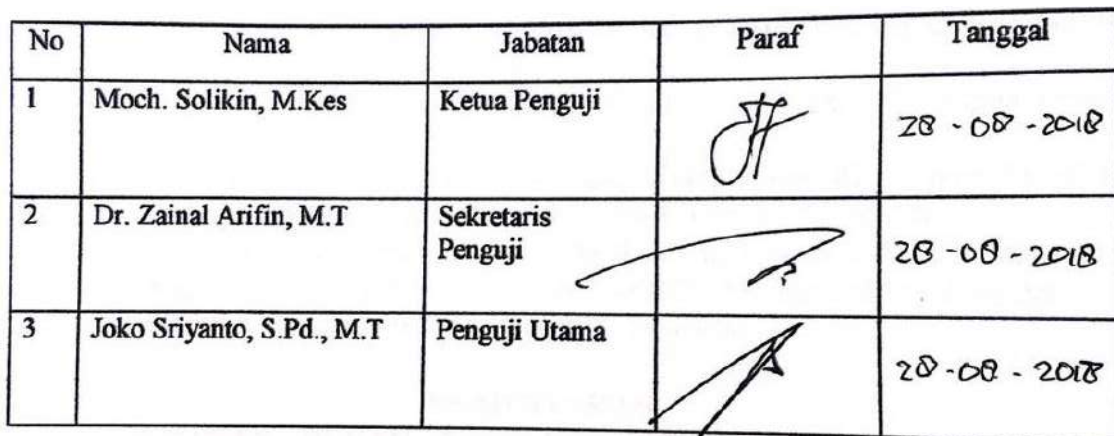 No Nama Jabatan Paraf Tanggal
1 Moch. Solikin, M.Kes Ketua Penguji 28-08-2018
2 Dr. Zainal Arifin, M.T Sekretaris
Penguji 28-08-2018
3 Joko Sriyanto, S.Pd., M.T Penguji Utama
28-08-2018